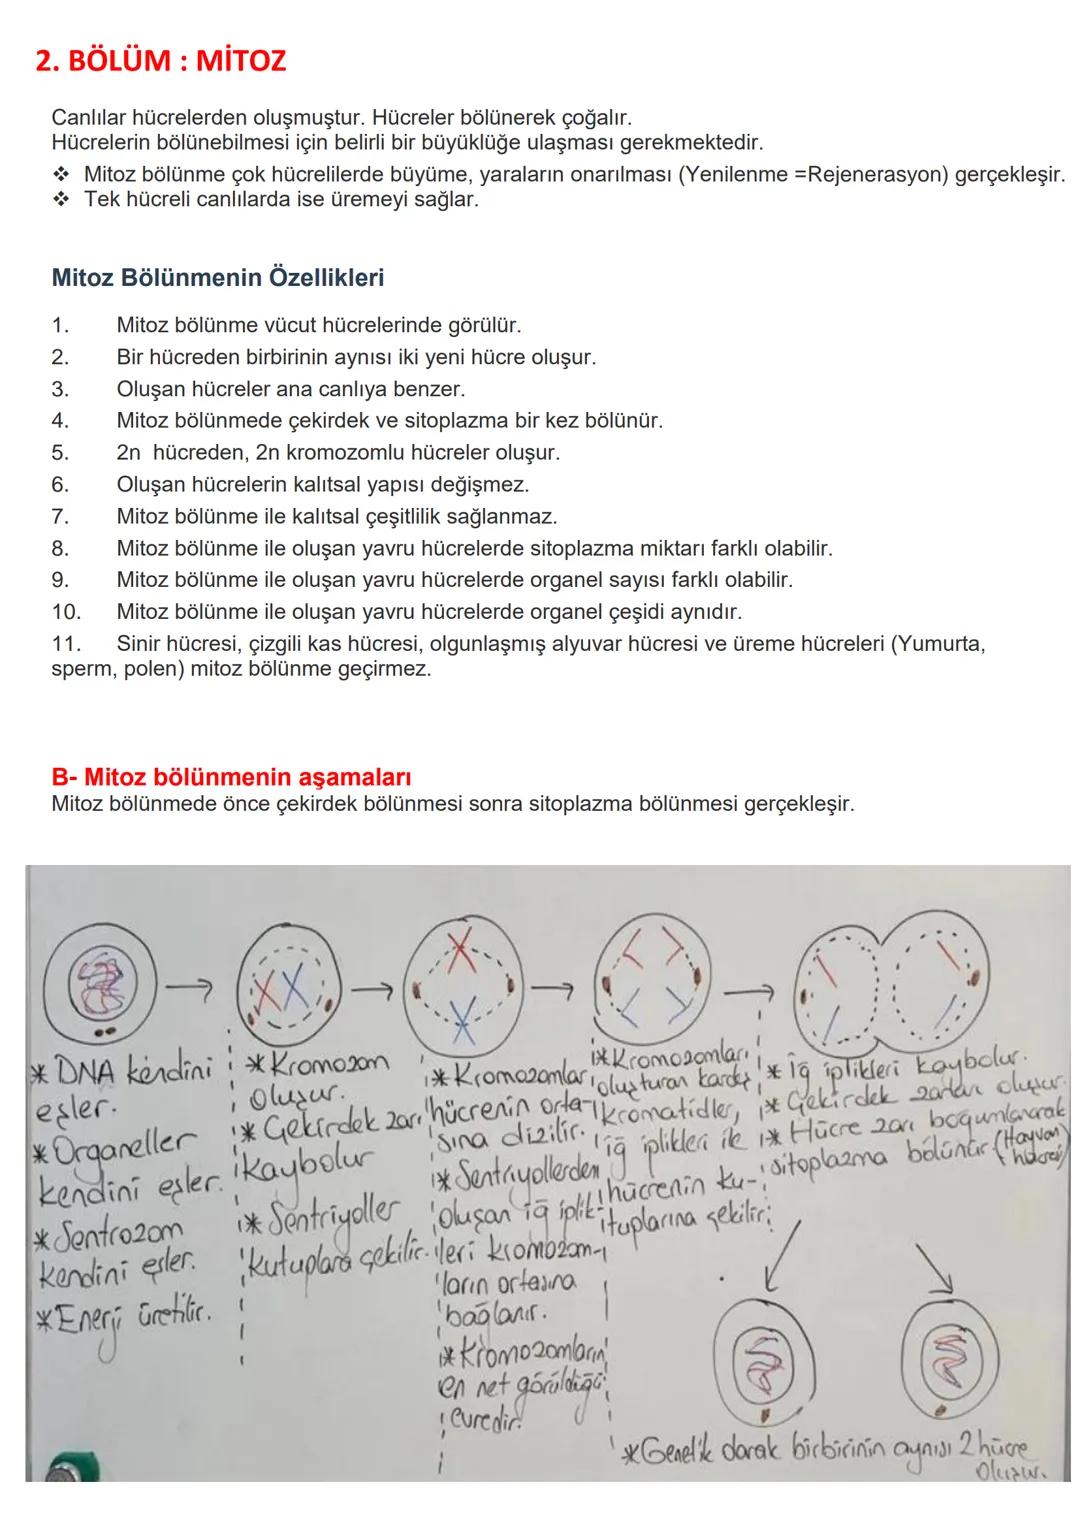 2. BÖLÜM : MİTOZ
Canlılar hücrelerden oluşmuştur. Hücreler bölünerek çoğalır.
Hücrelerin bölünebilmesi için belirli bir büyüklüğe ulaşması gerekmektedir.
❖ Mitoz bölünme çok hücrelilerde büyüme, yaraların onarılması (Yenilenme =Rejenerasyon) gerçekleşir.
❖ Tek hücreli canlılarda ise üremeyi sağlar.
Mitoz Bölünmenin Özellikleri
1. Mitoz bölünme vücut hücrelerinde görülür.
2. Bir hücreden birbirinin aynısı iki yeni hücre oluşur.
3. Oluşan hücreler ana canlıya benzer.
4. Mitoz bölünmede çekirdek ve sitoplazma bir kez bölünür.
5. 2n hücreden, 2n kromozomlu hücreler oluşur.
6. Oluşan hücrelerin kalıtsal yapısı değişmez.
7. Mitoz bölünme ile kalıtsal çeşitlilik sağlanmaz.
8. Mitoz bölünme ile oluşan yavru hücrelerde sitoplazma miktarı farklı olabilir.
9. Mitoz bölünme ile oluşan yavru hücrelerde organel sayısı farklı olabilir.
10. Mitoz bölünme ile oluşan yavru hücrelerde organel çeşidi aynıdır.
11. Sinir hücresi, çizgili kas hücresi, olgunlaşmış alyuvar hücresi ve üreme hücreleri (Yumurta,
sperm, polen) mitoz bölünme geçirmez.
B- Mitoz bölünmenin aşamaları
Mitoz bölünmede önce çekirdek bölünmesi sonra sitoplazma bölünmesi gerçekleşir.
* DNA kendini
eşler.
* Organeller
kendini eşler.
* Sentrozom
kendini eşler.
* Enerji üretilir.
* Kromozom
oluşur.
* Çekirdek zarı
kaybolur
* Sentriyoller
kutuplara çekilir.
* Kromozomlar
hücrenin orta-
sına dizilir.
* Sentriyollerden
oluşan iğ iplik-
leri kromozom-
ların ortasına
bağlanır.
* Kromozomların
en net görüldüğü
evredir.
* Kromozomları
oluşturan kardeş
kromatidler,
iğ iplikleri ile
hücrenin ku-
tuplarına çekilir.
* İğ iplikleri kaybolur.
* Çekirdek zarları oluşur.
* Hücre zarı boğumlanarak
sitoplazma bölünür (Hayvan
hücresi)
* Genetik olarak birbirinin aynısı 2 hücre
oluşur.